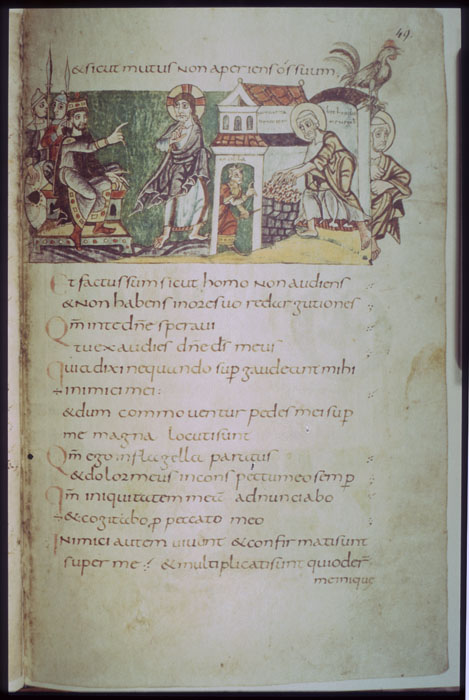 49.
& sicut mutus non aperiens os suum,
Et factus sum sicut homo non audiens
& non habens inore suo redargutiones
Qm inte dne speraui
tu exaudies dne ds meus
Quia dixi nequando sup gaudeant mihi
inimici mei:
& dum commouentur pedes mei sup
me magna locuti sunt
Qm ego inflagella paratus
& dolor meus in conspectu meo semp
Qm iniquitatem meā adnunciabo
& cogitabo p peccato meo
Inimici autem uiuunt & confirmati sunt
super me: & multiplicati sunt qui oder̄
me inique